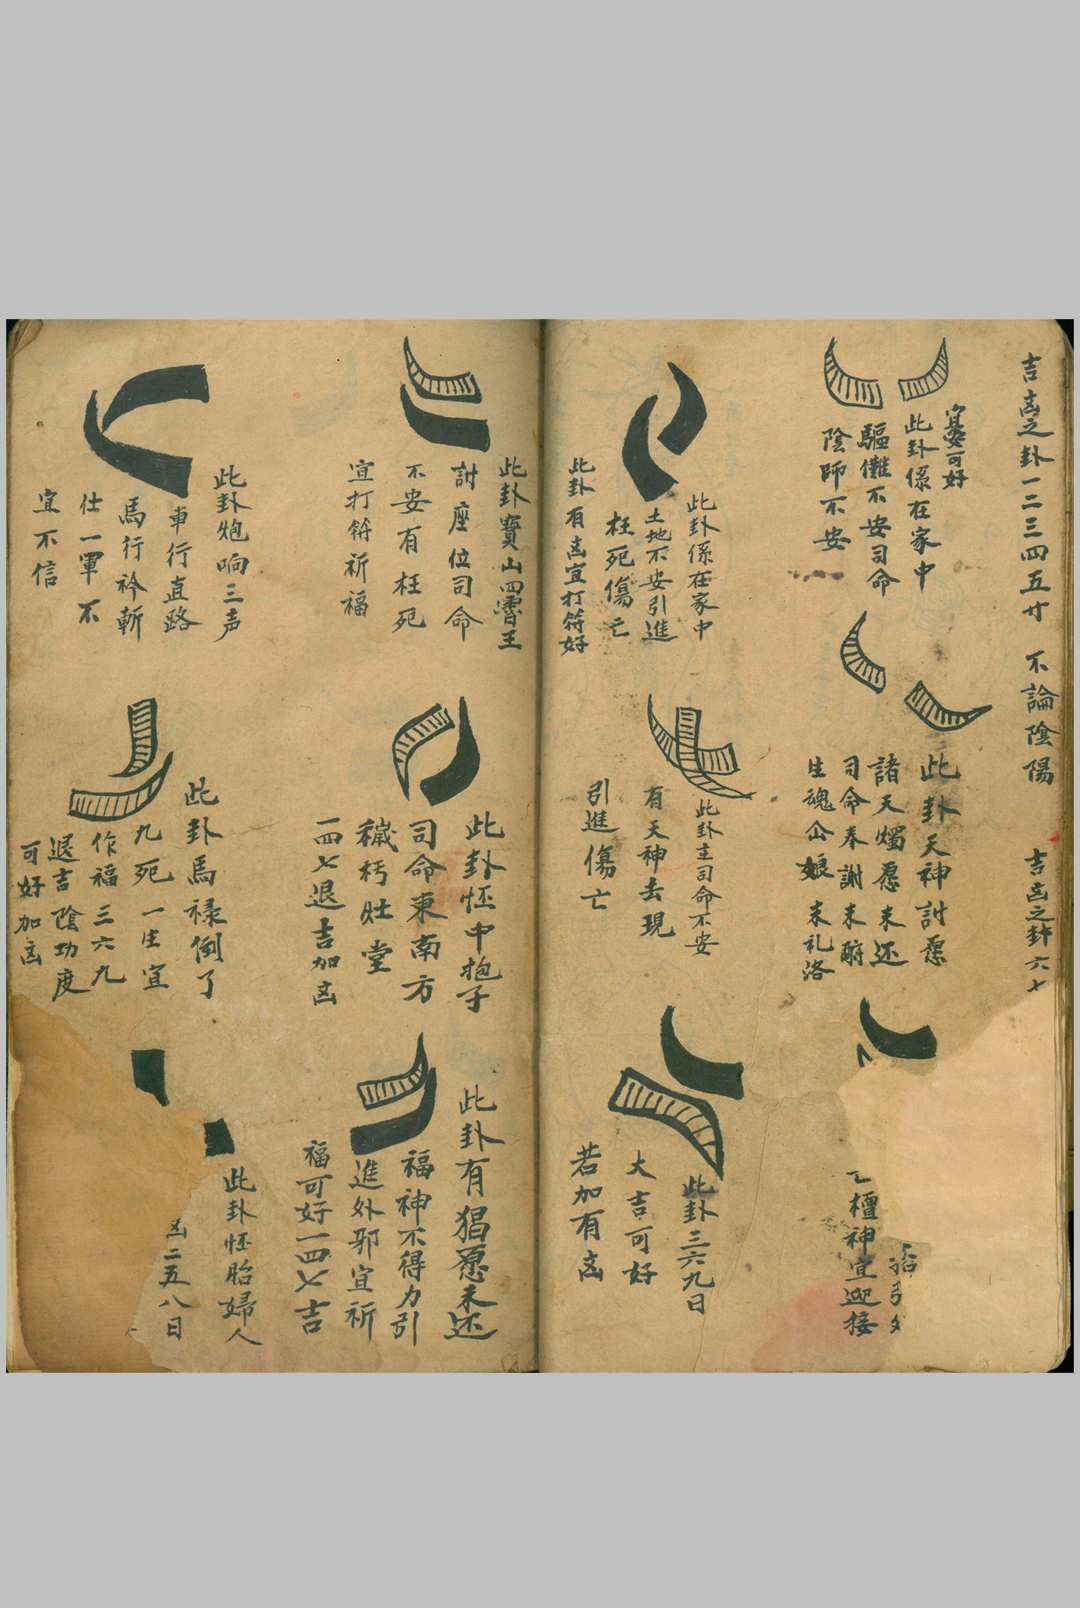 吉凶之卦一二三四五廿 不論陰陽 吉凶之卦六七
宜安可好
此卦係在家中
驅儺不安司命
陰師不安
此卦天神討愿
諸天燭愿未还
司命奉謝未酧
生魂公娘未礼洛
檀神宜迎接
此卦係在家中
土地不安引進
枉死傷亡
此卦有凶宜打符好
此卦主司命不安
有天神去現
引進傷亡
此卦三六九日
大吉可好
若加有凶
此卦寶山四霄王
討座位司命
不安有枉死
宜打符祈福
此卦怌中抱子
司命東南方
穢杇灶堂
一四七退吉加凶
此卦有猖愿未还
福神不得力引
進外邪宜祈
福可好一四七吉
此卦炮响三声
車行直路
馬行衿斬
仕一軍不
宜不信
此卦馬禄倒了
九死一生宜
作福三六九
退吉陰功度
可好加凶
此卦怌胎婦人
凶二五八日